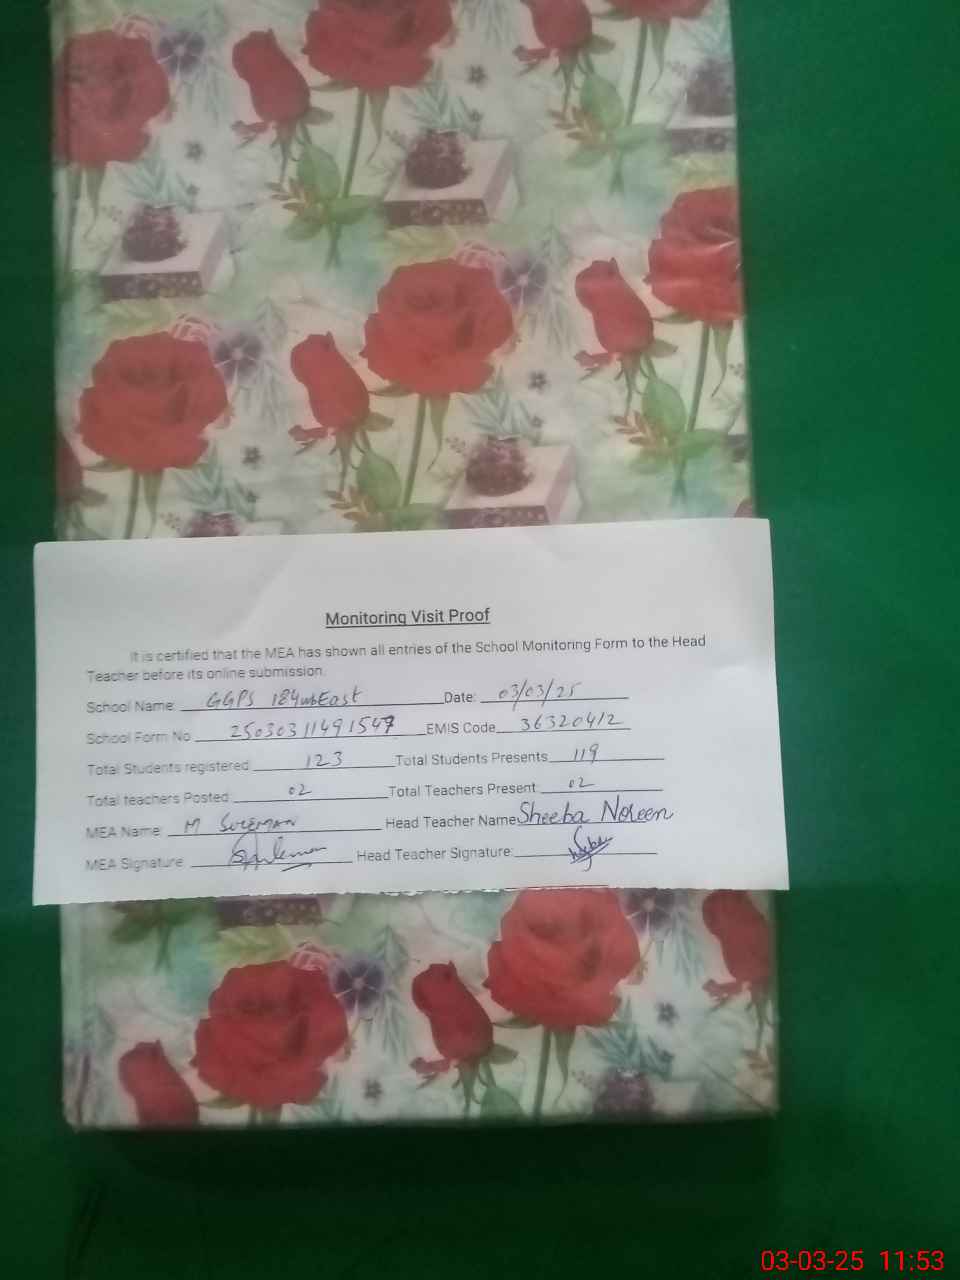 Monitoring Visit Proof
It is certified that the MEA has shown all entries of the School Monitoring Form to the Head
Teacher before its online submission.
School Name: GGPS 184wbEast Date: 03/03/25
School Form No 25030311491547 EMIS Code 36320412
Total Students registered 123 Total Students Presents 119
Total teachers Posted 02 Total Teachers Present: 02
MEA Name: M SULEMAN Head Teacher Name Sheeba Noreen
MEA Signature: Suleman Head Teacher Signature:
03-03-25 11:53